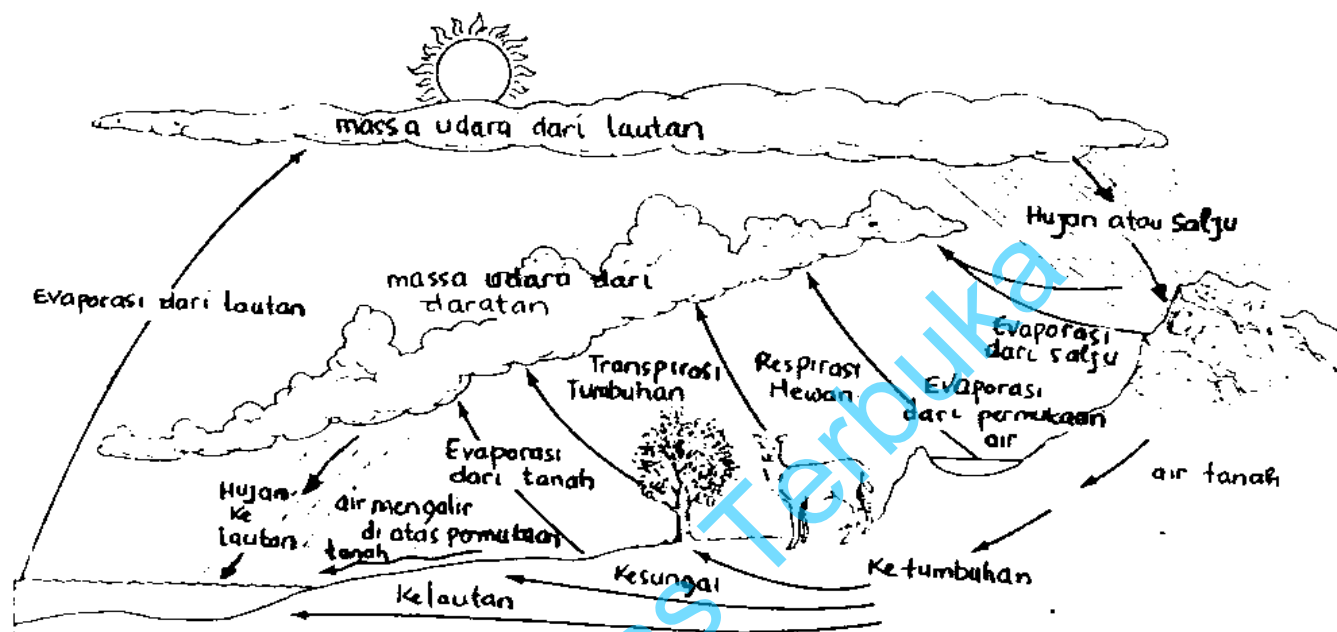 massa udara dari lautan
Hujan atau Salju
massa udara dari
daratan
Evaporasi dari lautan
Evaporasi
dari salju
Transpirasi
Tumbuhan
Respirasi
Hewan
Evaporasi
dari permukaan
air
Evaporasi
dari tanah
air tanah
Hujan
Ke
lautan
air mengalir
di atas permukaan
tanah
Ke tumbuhan
Kesungai
Kelautan
s Terbuka